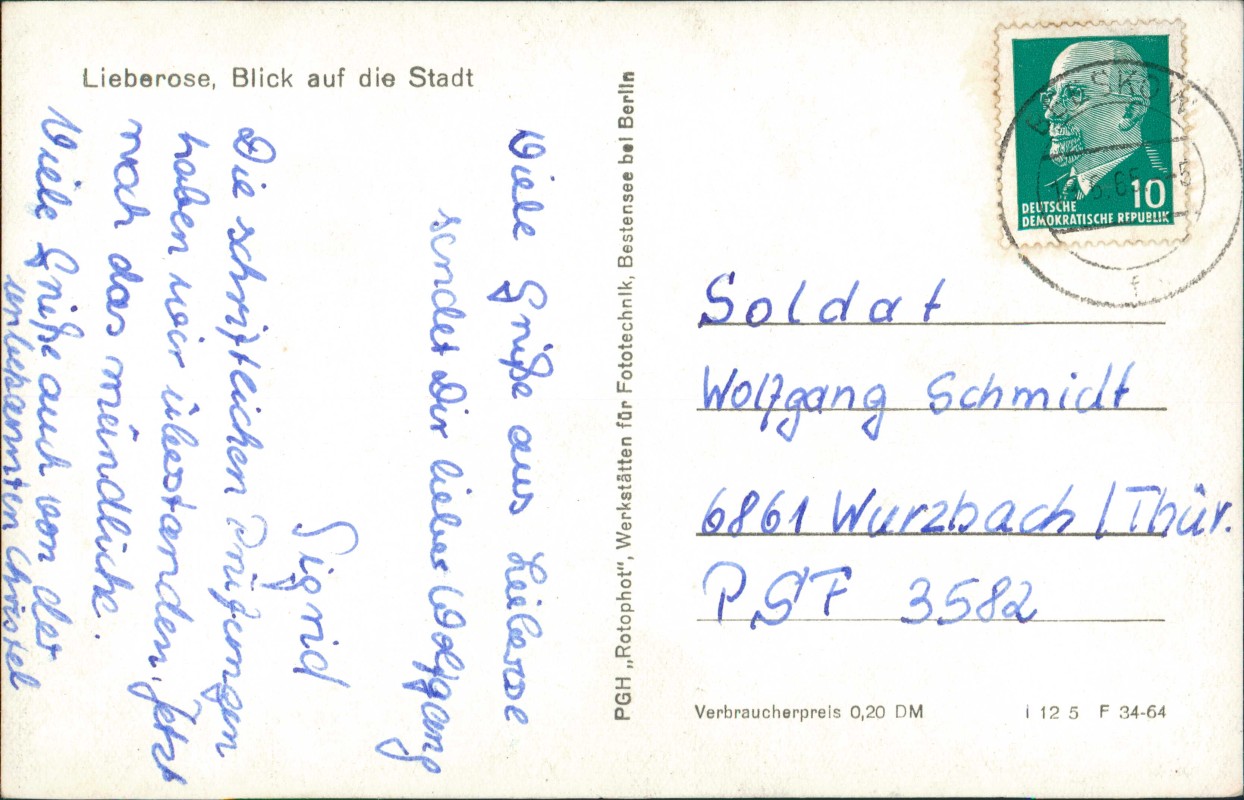 Lieberose, Blick auf die Stadt
Viele Grüße aus Lieberose
sendet Dir lieber Wolfgang
Sigrid
Die schriftlichen Prüfungen
haben wir überstanden. Jetzt
noch das mündliche.
Viele Grüße auch von der
unbekannten Christel
PGH „Rotophot", Werkstätten für Fototechnik, Bestensee bei Berlin
DEUTSCHE 10
DEMOKRATISCHE REPUBLIK
Soldat
Wolfgang Schmidt
6861 Wurzbach / Thür.
PSF 3582
Verbraucherpreis 0,20 DM
I 12 5 F 34-64